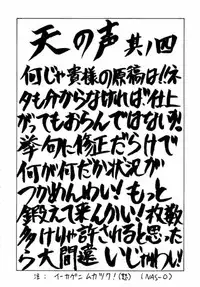 天の声 其ノ四
何じゃ貴様の原稿は!!ネ
タも介からなければ仕上
がってもおらんではないか!!
挙句に修正だらけで
何が何だか状況が
つかめんわい! もっと
鍛えて来んかい! 枚数
多けりゃ許されると思った
ら大間違いじゃわい!
注: イーカゲンムカツク!(怒) (NAS-O)